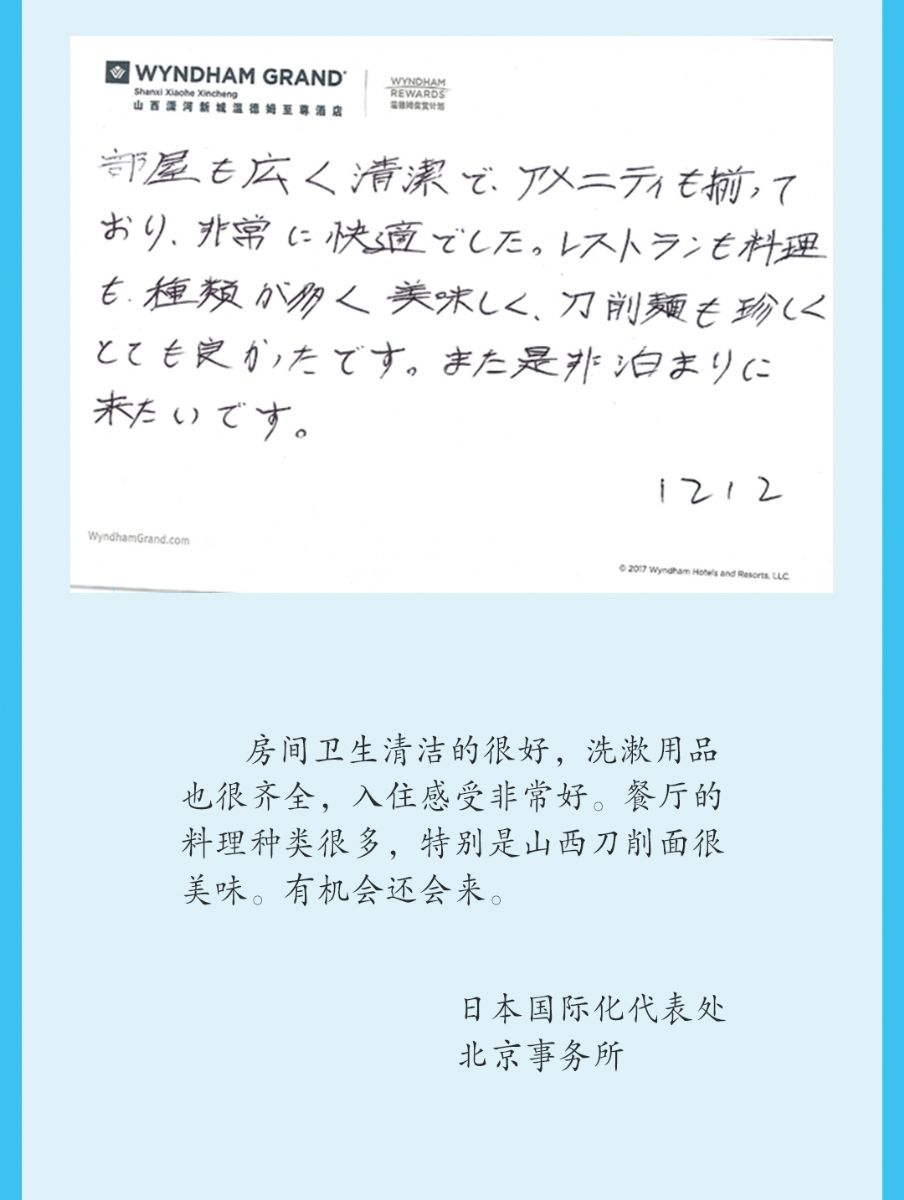 WYNDHAM GRAND
Shanxi Xiaohe Xincheng
山西潇河新城温德姆至尊酒店
WYNDHAM
REWARDS
温德姆奖赏计划
部屋も広く清潔で、アメニティも揃って
おり、非常に快適でした。レストランも料理
も種類が多く美味しく、刀削麺も珍しく
とても良かったです。また是非泊まりに
来たいです。
1212
WyndhamGrand.com
© 2017 Wyndham Hotels and Resorts, LLC.
房间卫生清洁的很好，洗漱用品
也很齐全，入住感受非常好。餐厅的
料理种类很多，特别是山西刀削面很
美味。有机会还会来。
日本国际化代表处
北京事务所